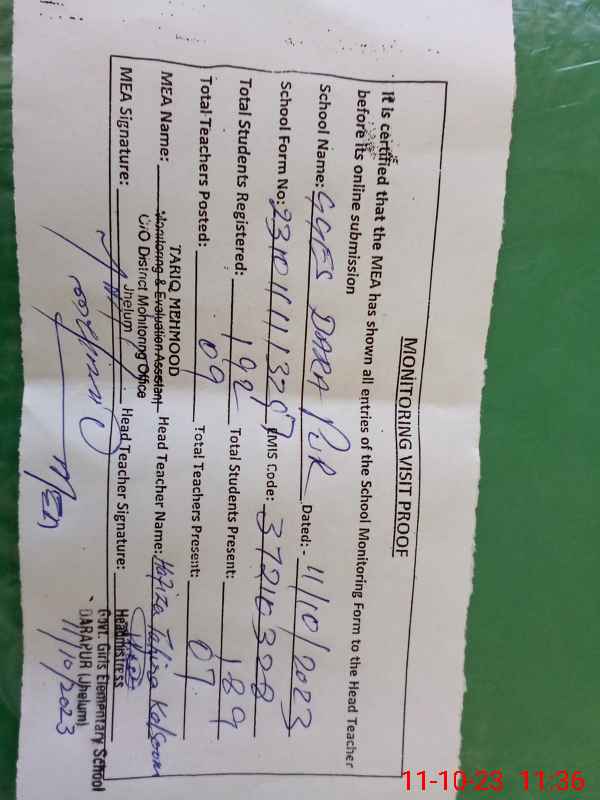 MONITORING VISIT PROOF
It is certified that the MEA has shown all entries of the School Monitoring Form to the Head Teacher
before its online submission
School Name: GGES DARA PUR Dated:- 11/10/2023
School Form No: EMIS Code: 37210328
Total Students Registered: 192 Total Students Present: 189
Total Teachers Posted: 09 Total Teachers Present: 07
TARIQ MEHMOOD
MEA Name: Monitoring & Evaluation Assistant Head Teacher Name: Hafiza Tahira Kalsoom
O/O District Monitoring Office
Jhelum
MEA Signature: Head Teacher Signature:
MEA
Headmistress
Govt. Girls Elementary School
DARAPUR (Jhelum)
11/10/2023
11-10-23 11:36